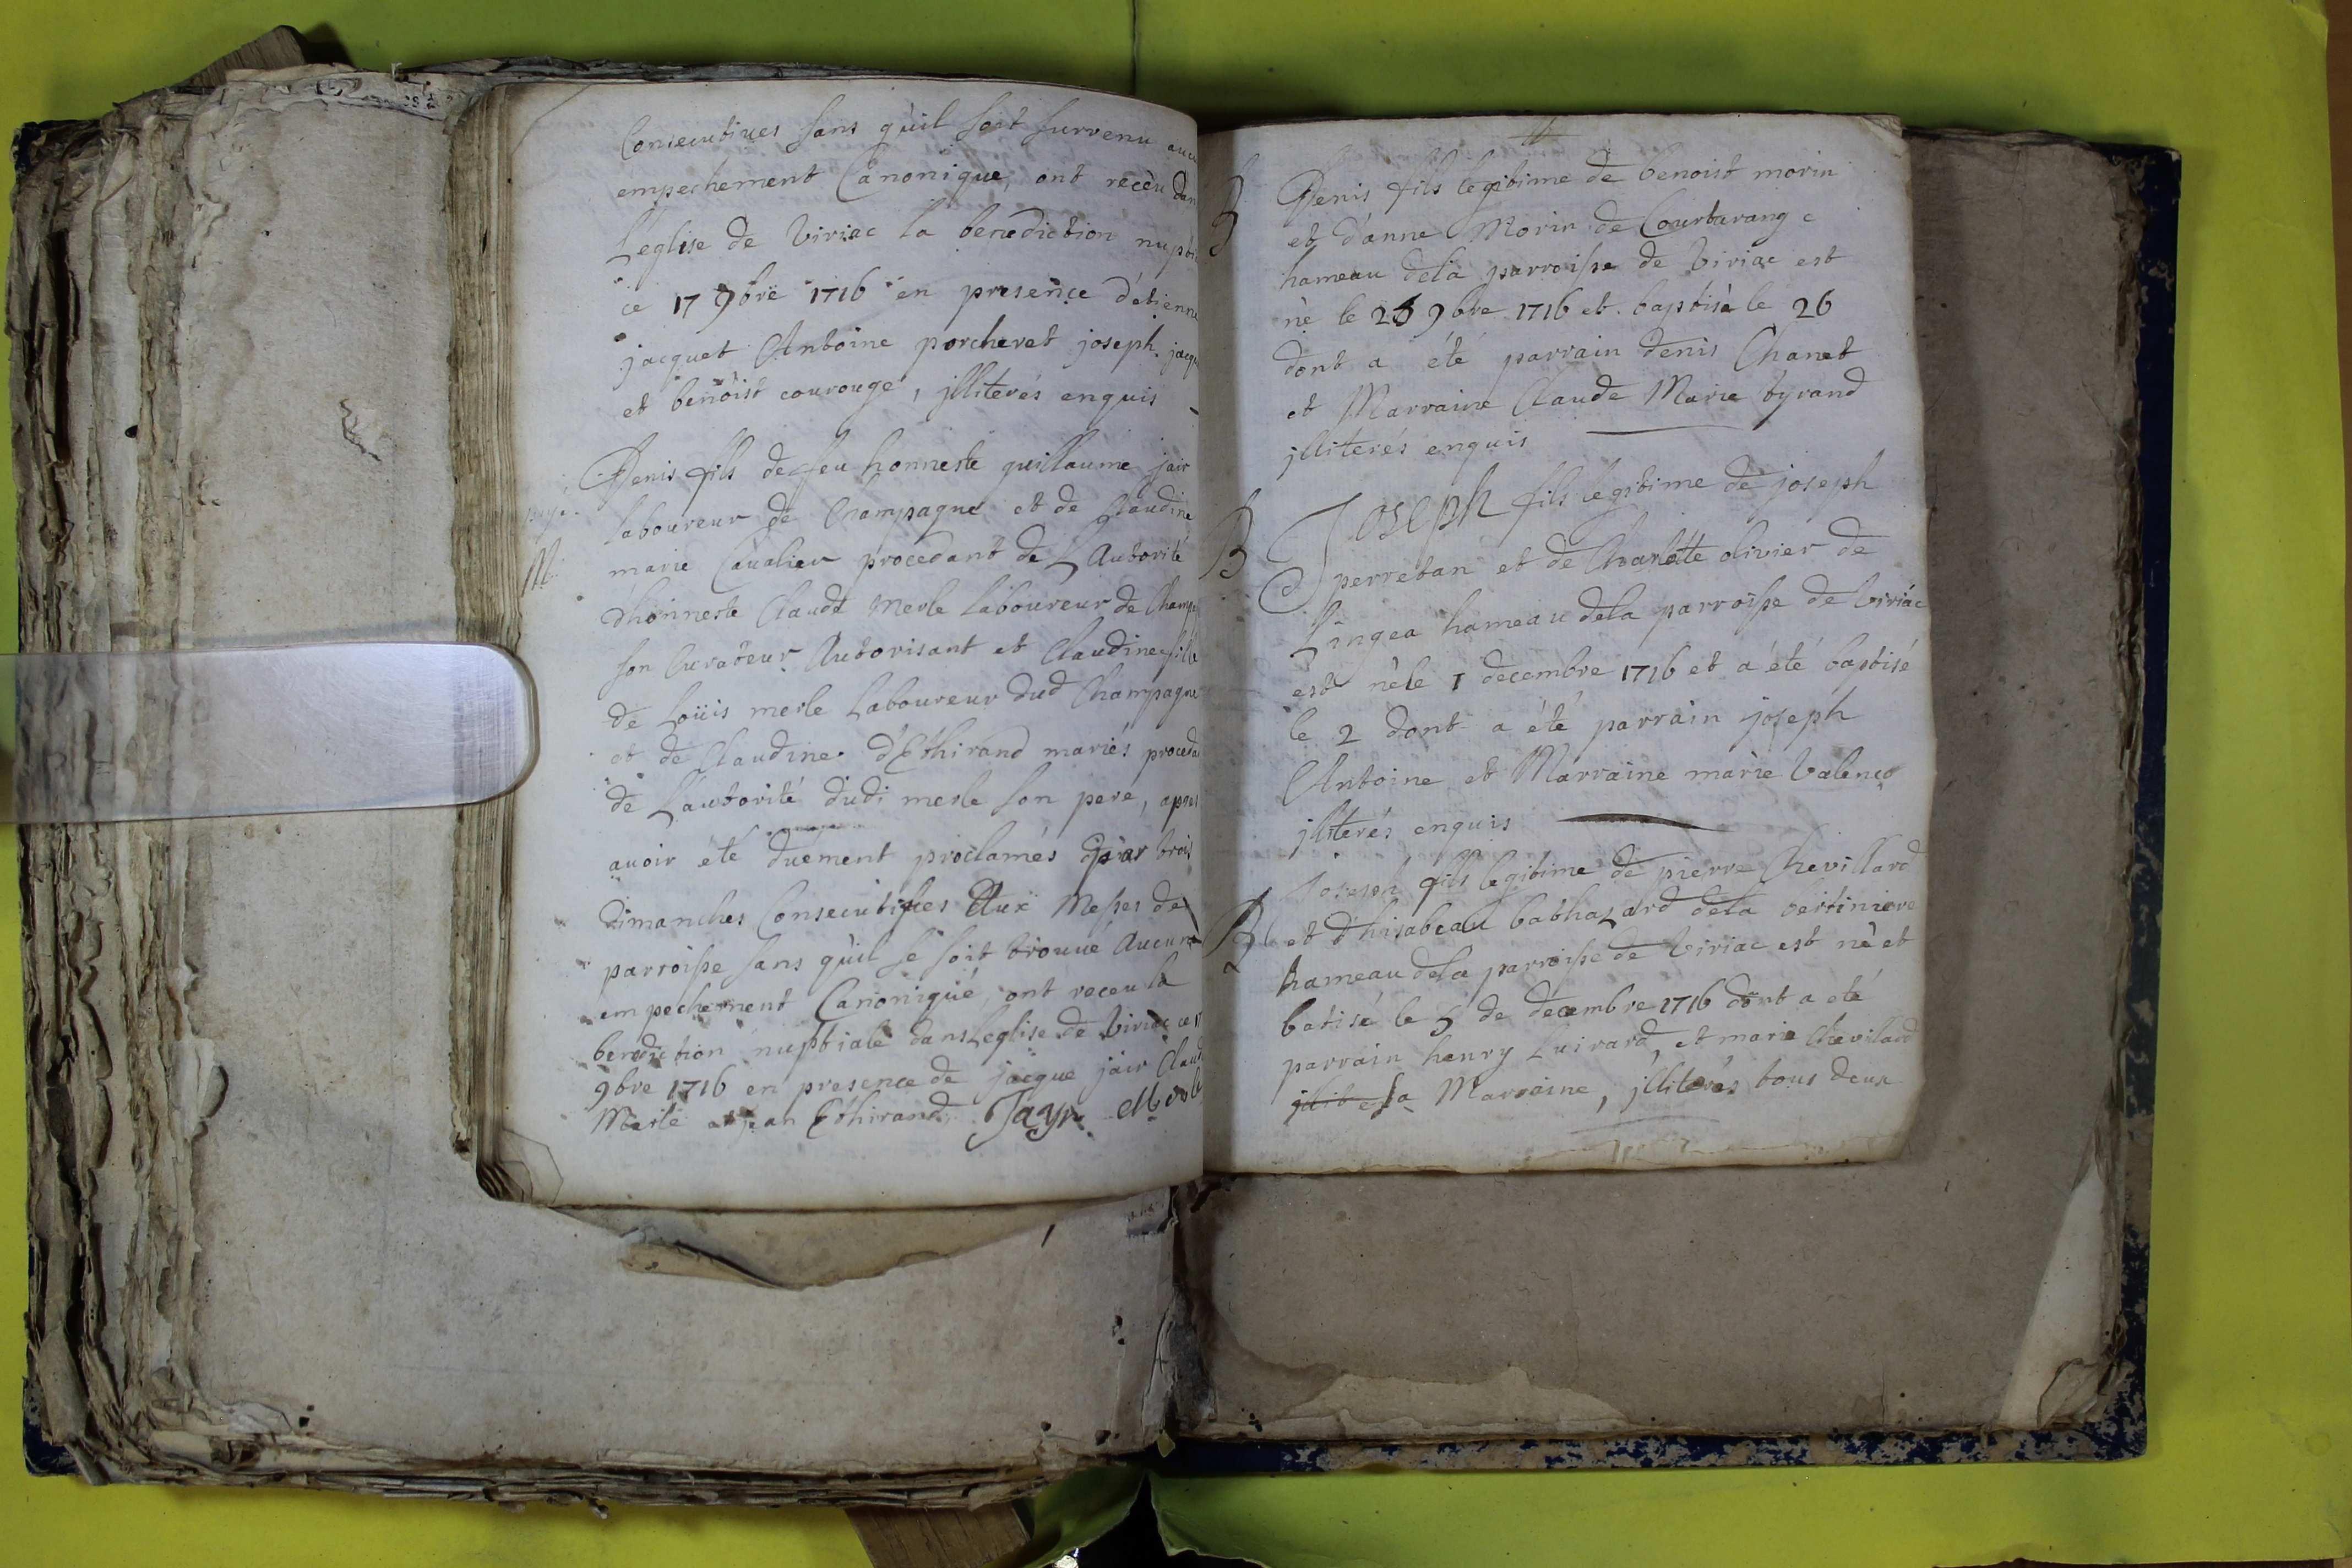 Consecutives sans qu'il soit survenu
empechement Canonique, ont receu dan
L'eglise de Viriac la benediction nuptia
ce 17 9bre 1716 en presence d'etienne
jacquet Antoine porcheret joseph jacqu
et benoist courouge, jlliterés enquis
Denis fils de feu honneste guillaume jair
laboureur de Champagne et de Claudine
M
marie Cavalier procedant de L'Autorité
d'honneste Claude Merle laboureur de Champ
son Curateur Autorisant et Claudine fille
de Loüis merle Laboureur dud Champagne
et de Claudine d'Ethirand mariés proceda
de L'autorité dudi merle son pere, apres
avoir été duement proclamés par trois
dimanches Consecutifves Aux Messes de
parroisse sans qu'il se soit trouvé Aucun
empechement Canonique, ont receu la
benediction nuptiale dans Leglise de Viriac ce 17
9bre 1716 en presence de jacque jair Claud
Merle et jean Ethirand. Jayr Merle
B
Denis fils legitime de benoist morin
et d'anne Morin de Courtarange
hameau dela parroisse de Viriac est
né le 25 9bre 1716 et baptisé le 26
dont a été parrain denis Chanet
et Marraine Claude Marie tyrand
jlliterés enquis
B
Joseph fils legitime de joseph
perretan et de Charlotte olivier de
Lingea hameau dela parroisse de Viriác
est né le 1 decembre 1716 et a été baptisé
le 2 dont a été parrain joseph
Antoine et Marraine marie Valenço
jlliterés enquis
Joseph fils legitime de pierre Chevillard
B
et d'hisabeau bathazard dela bertiniere
hameau dela parroisse de Viriac est né et
batisé le 5 de decembre 1716 dont a eté
parrain henry Luirard, et marie Chevillard
sa Marraine, jlliterés tous deux